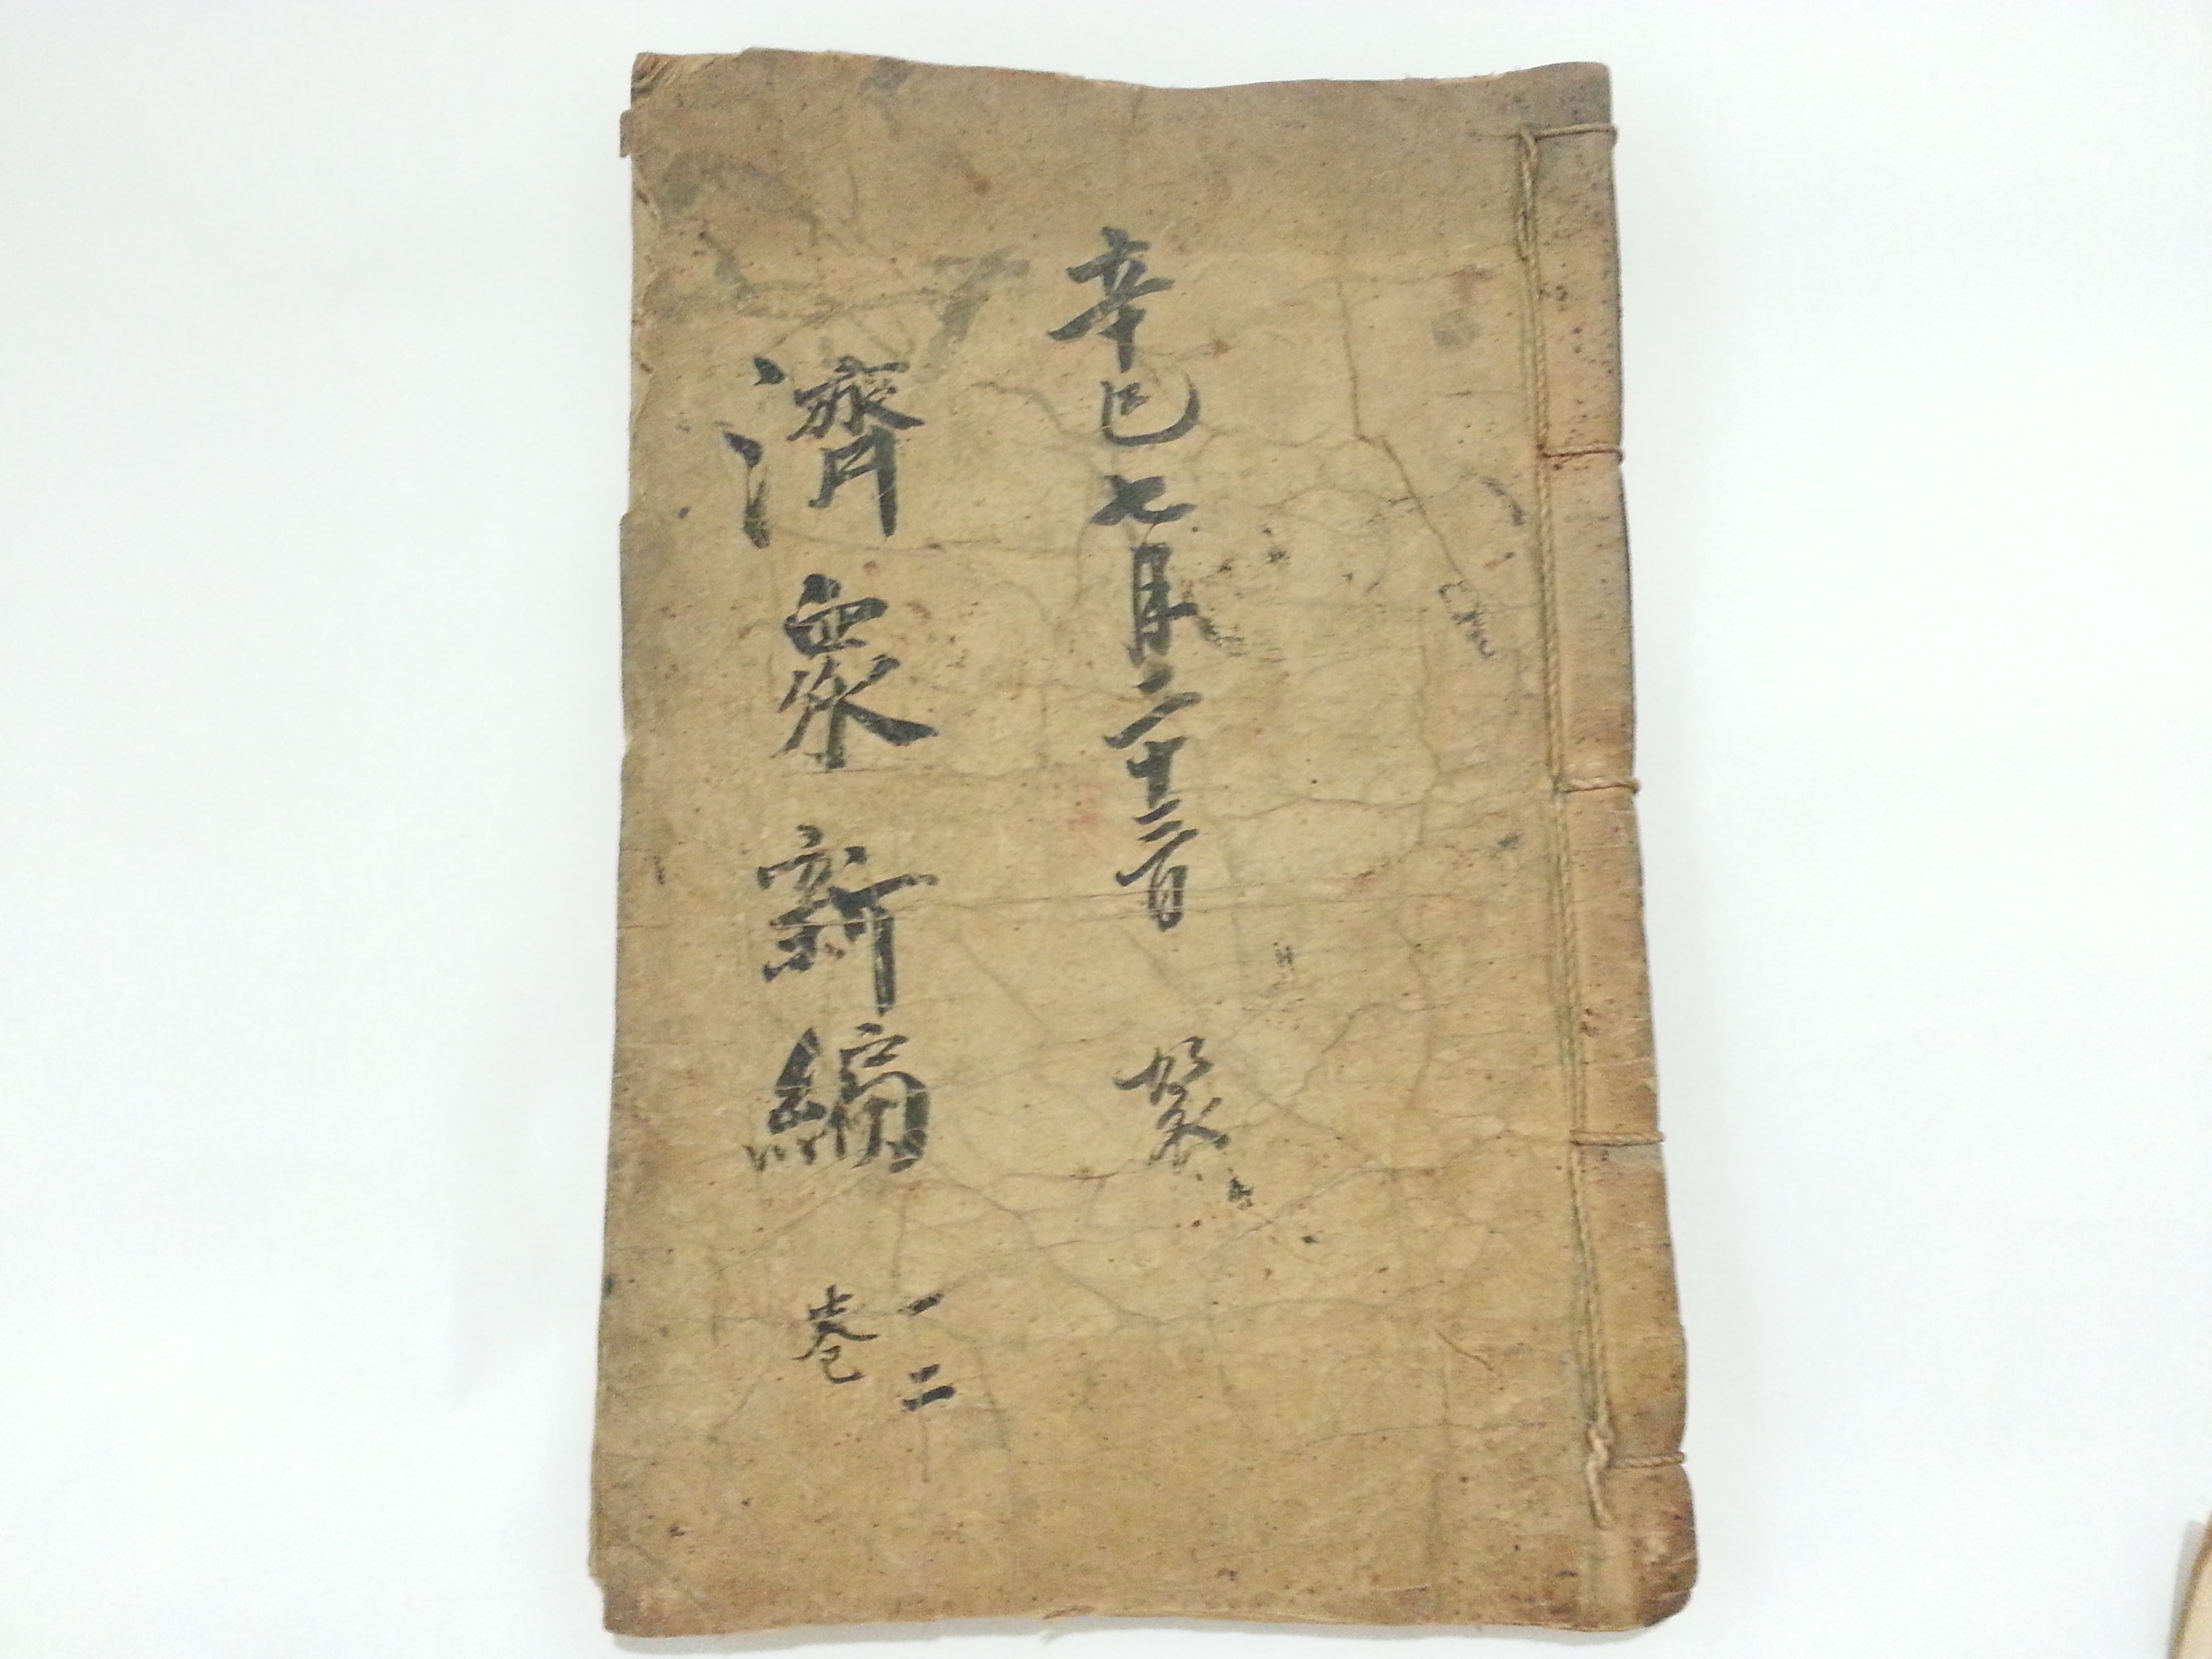 辛巳七月二十三日
濟衆新編 卷 一 二